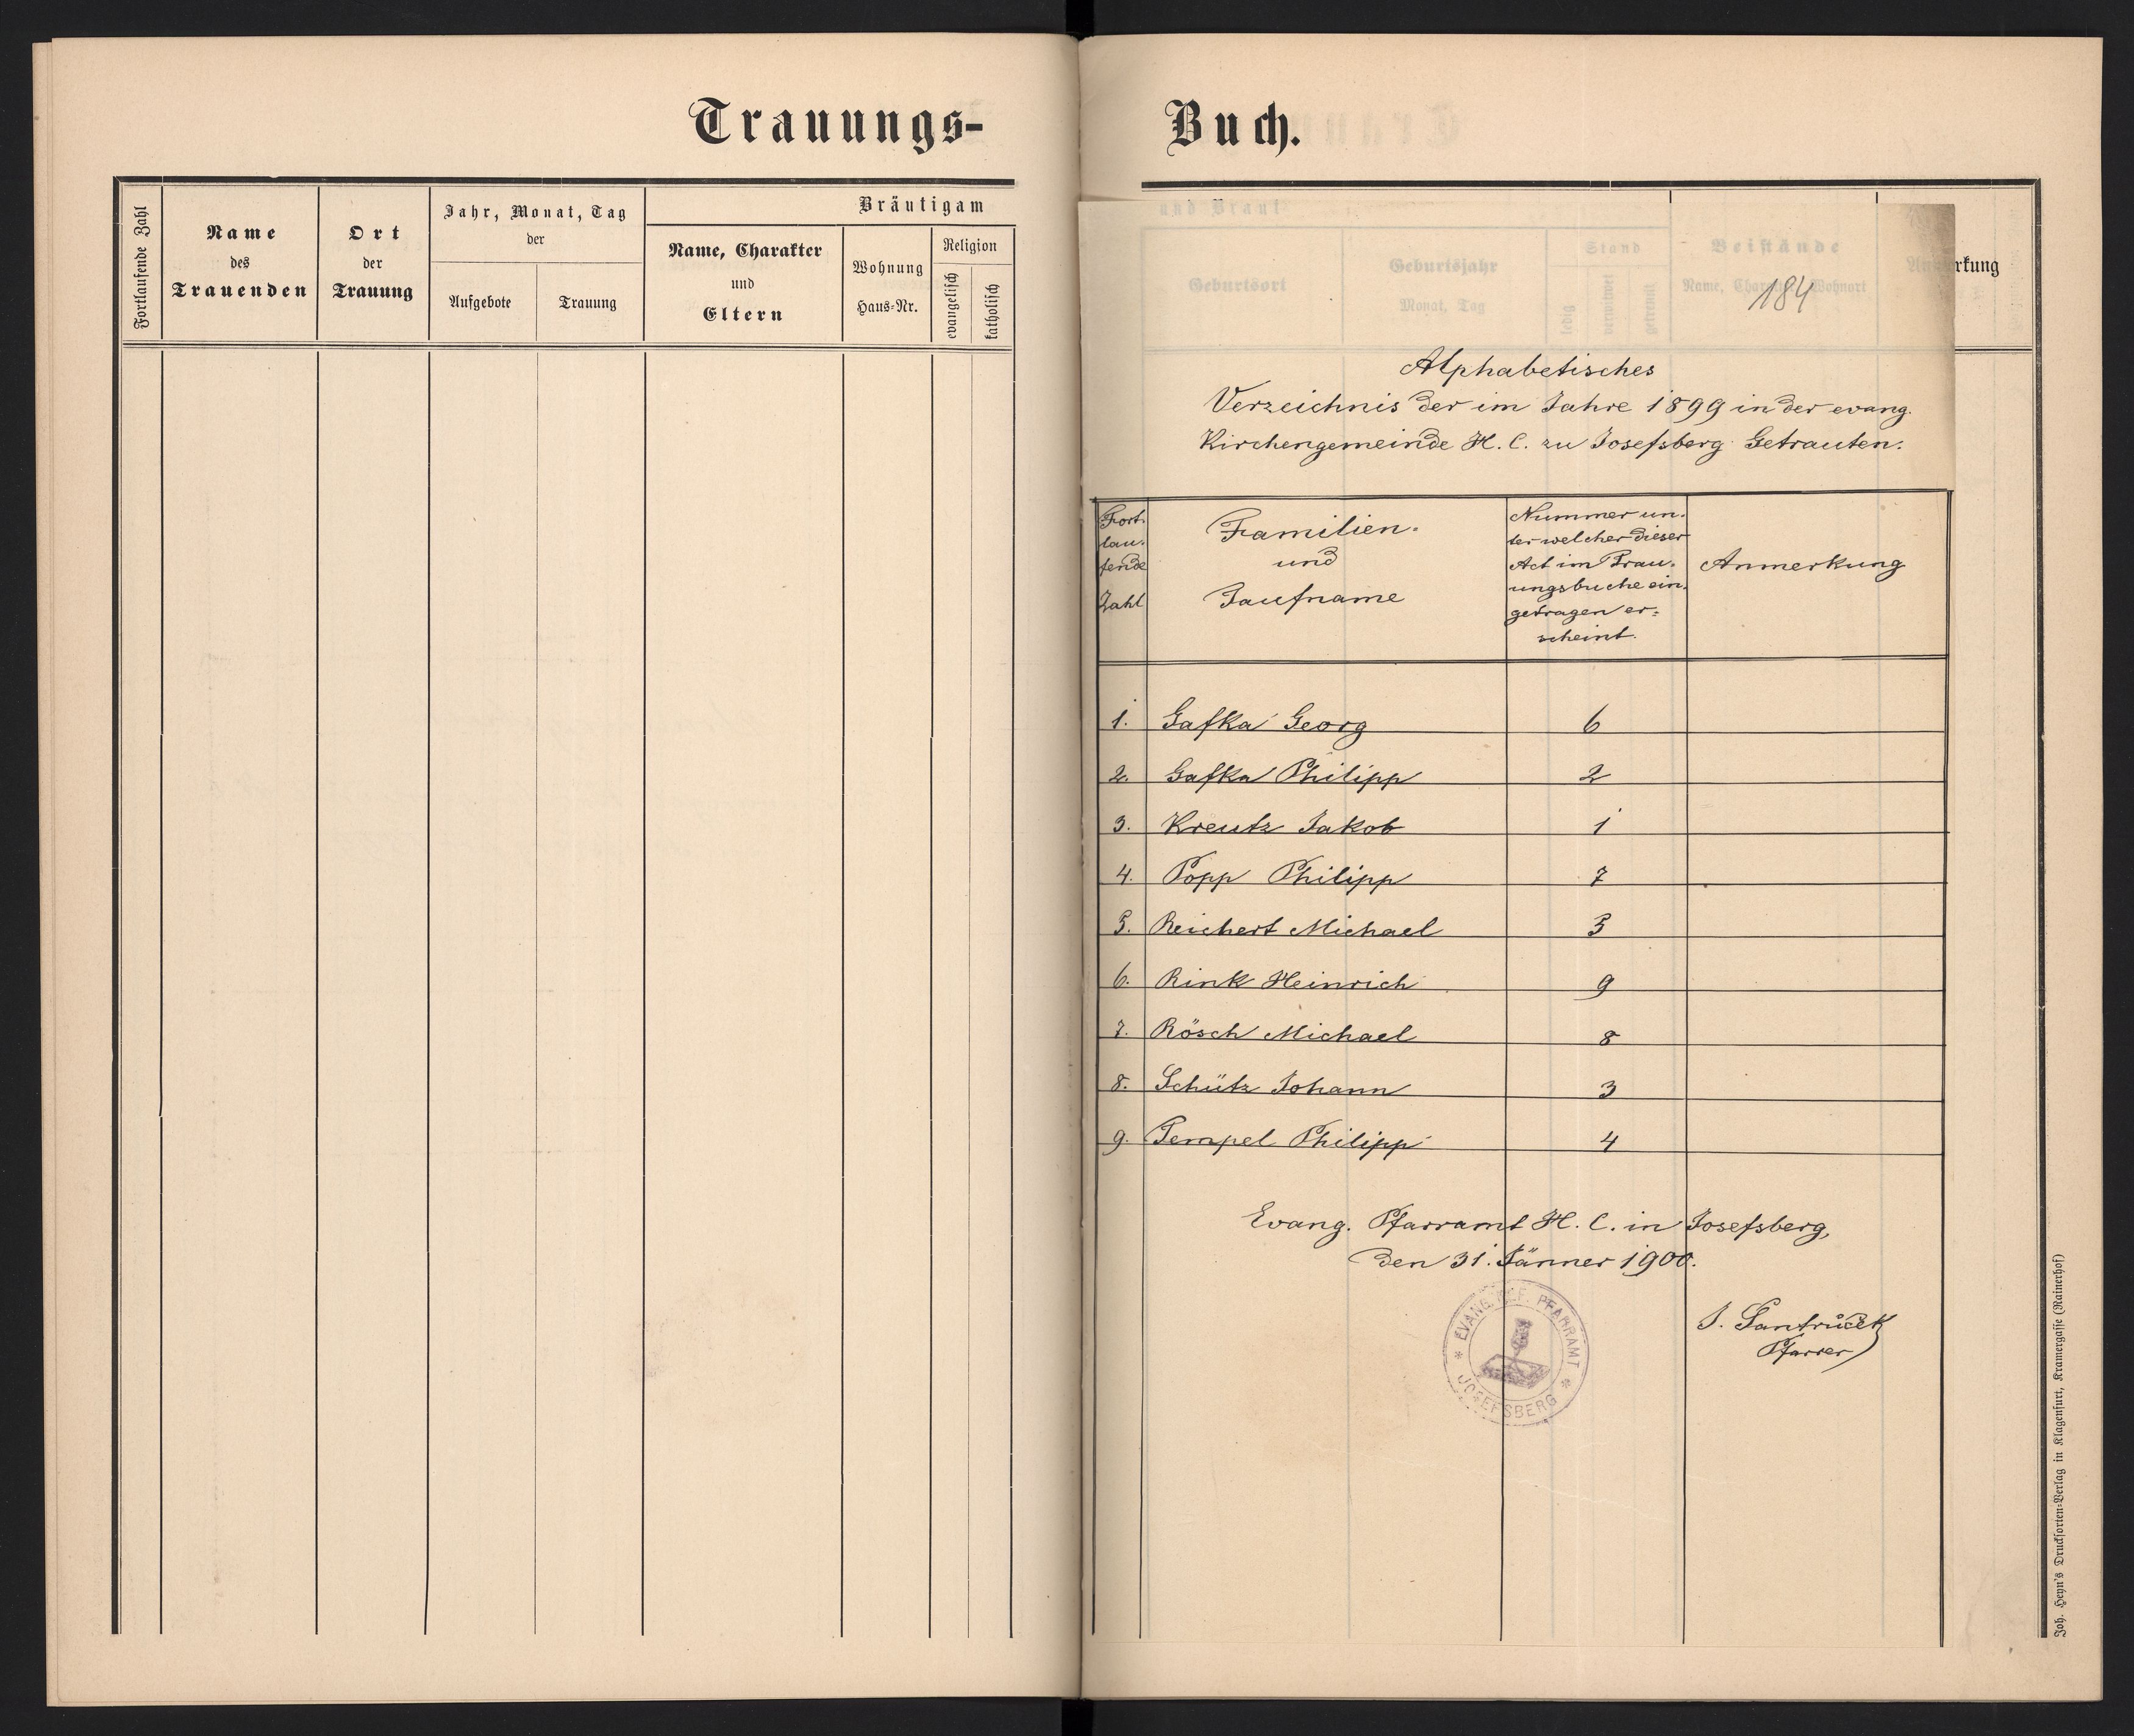 Trauungs-
Fortlaufende Zahl
Name
des
Trauenden
Ort
der
Trauung
Jahr, Monat, Tag
der
Aufgebote
Trauung
Bräutigam
Name, Charakter
und
Eltern
Wohnung
Haus-Nr.
Religion
evangelisch
katholisch
Buch.
und Braut
Geburtsort
Geburtsjahr
Monat, Tag
Stand
ledig
verwitwet
getrennt
Beistände
Name, Charakter, Wohnort
Anmerkung
184
Alphabetisches
Verzeichnis der im Jahre 1899 in der evang.
Kirchengemeinde H. C. zu Josefsberg Getrauten.
Fort-
lau-
fende
Zahl
Familien-
und
Taufname
Nummer un-
ter welcher dieser
Act im Trau-
ungsbuche ein-
getragen er-
scheint.
Anmerkung
1. Gafka Georg 6
2. Gafka Philipp 2
3. Kreutz Jakob 1
4. Popp Philipp 7
5. Reichert Michael 5
6. Rink Heinrich 9
7. Rösch Michael 8
8. Schütz Johann 3
9. Tempel Philipp 4
Evang. Pfarramt H. C. in Josefsberg,
den 31. Jänner 1900.
EVANG. REF. PFARRAMT
JOSEFSBERG
J. Santrůček
Pfarrer
Joh. Heyn's Drucksorten-Verlag in Klagenfurt, Kramergasse (Rainerhof)